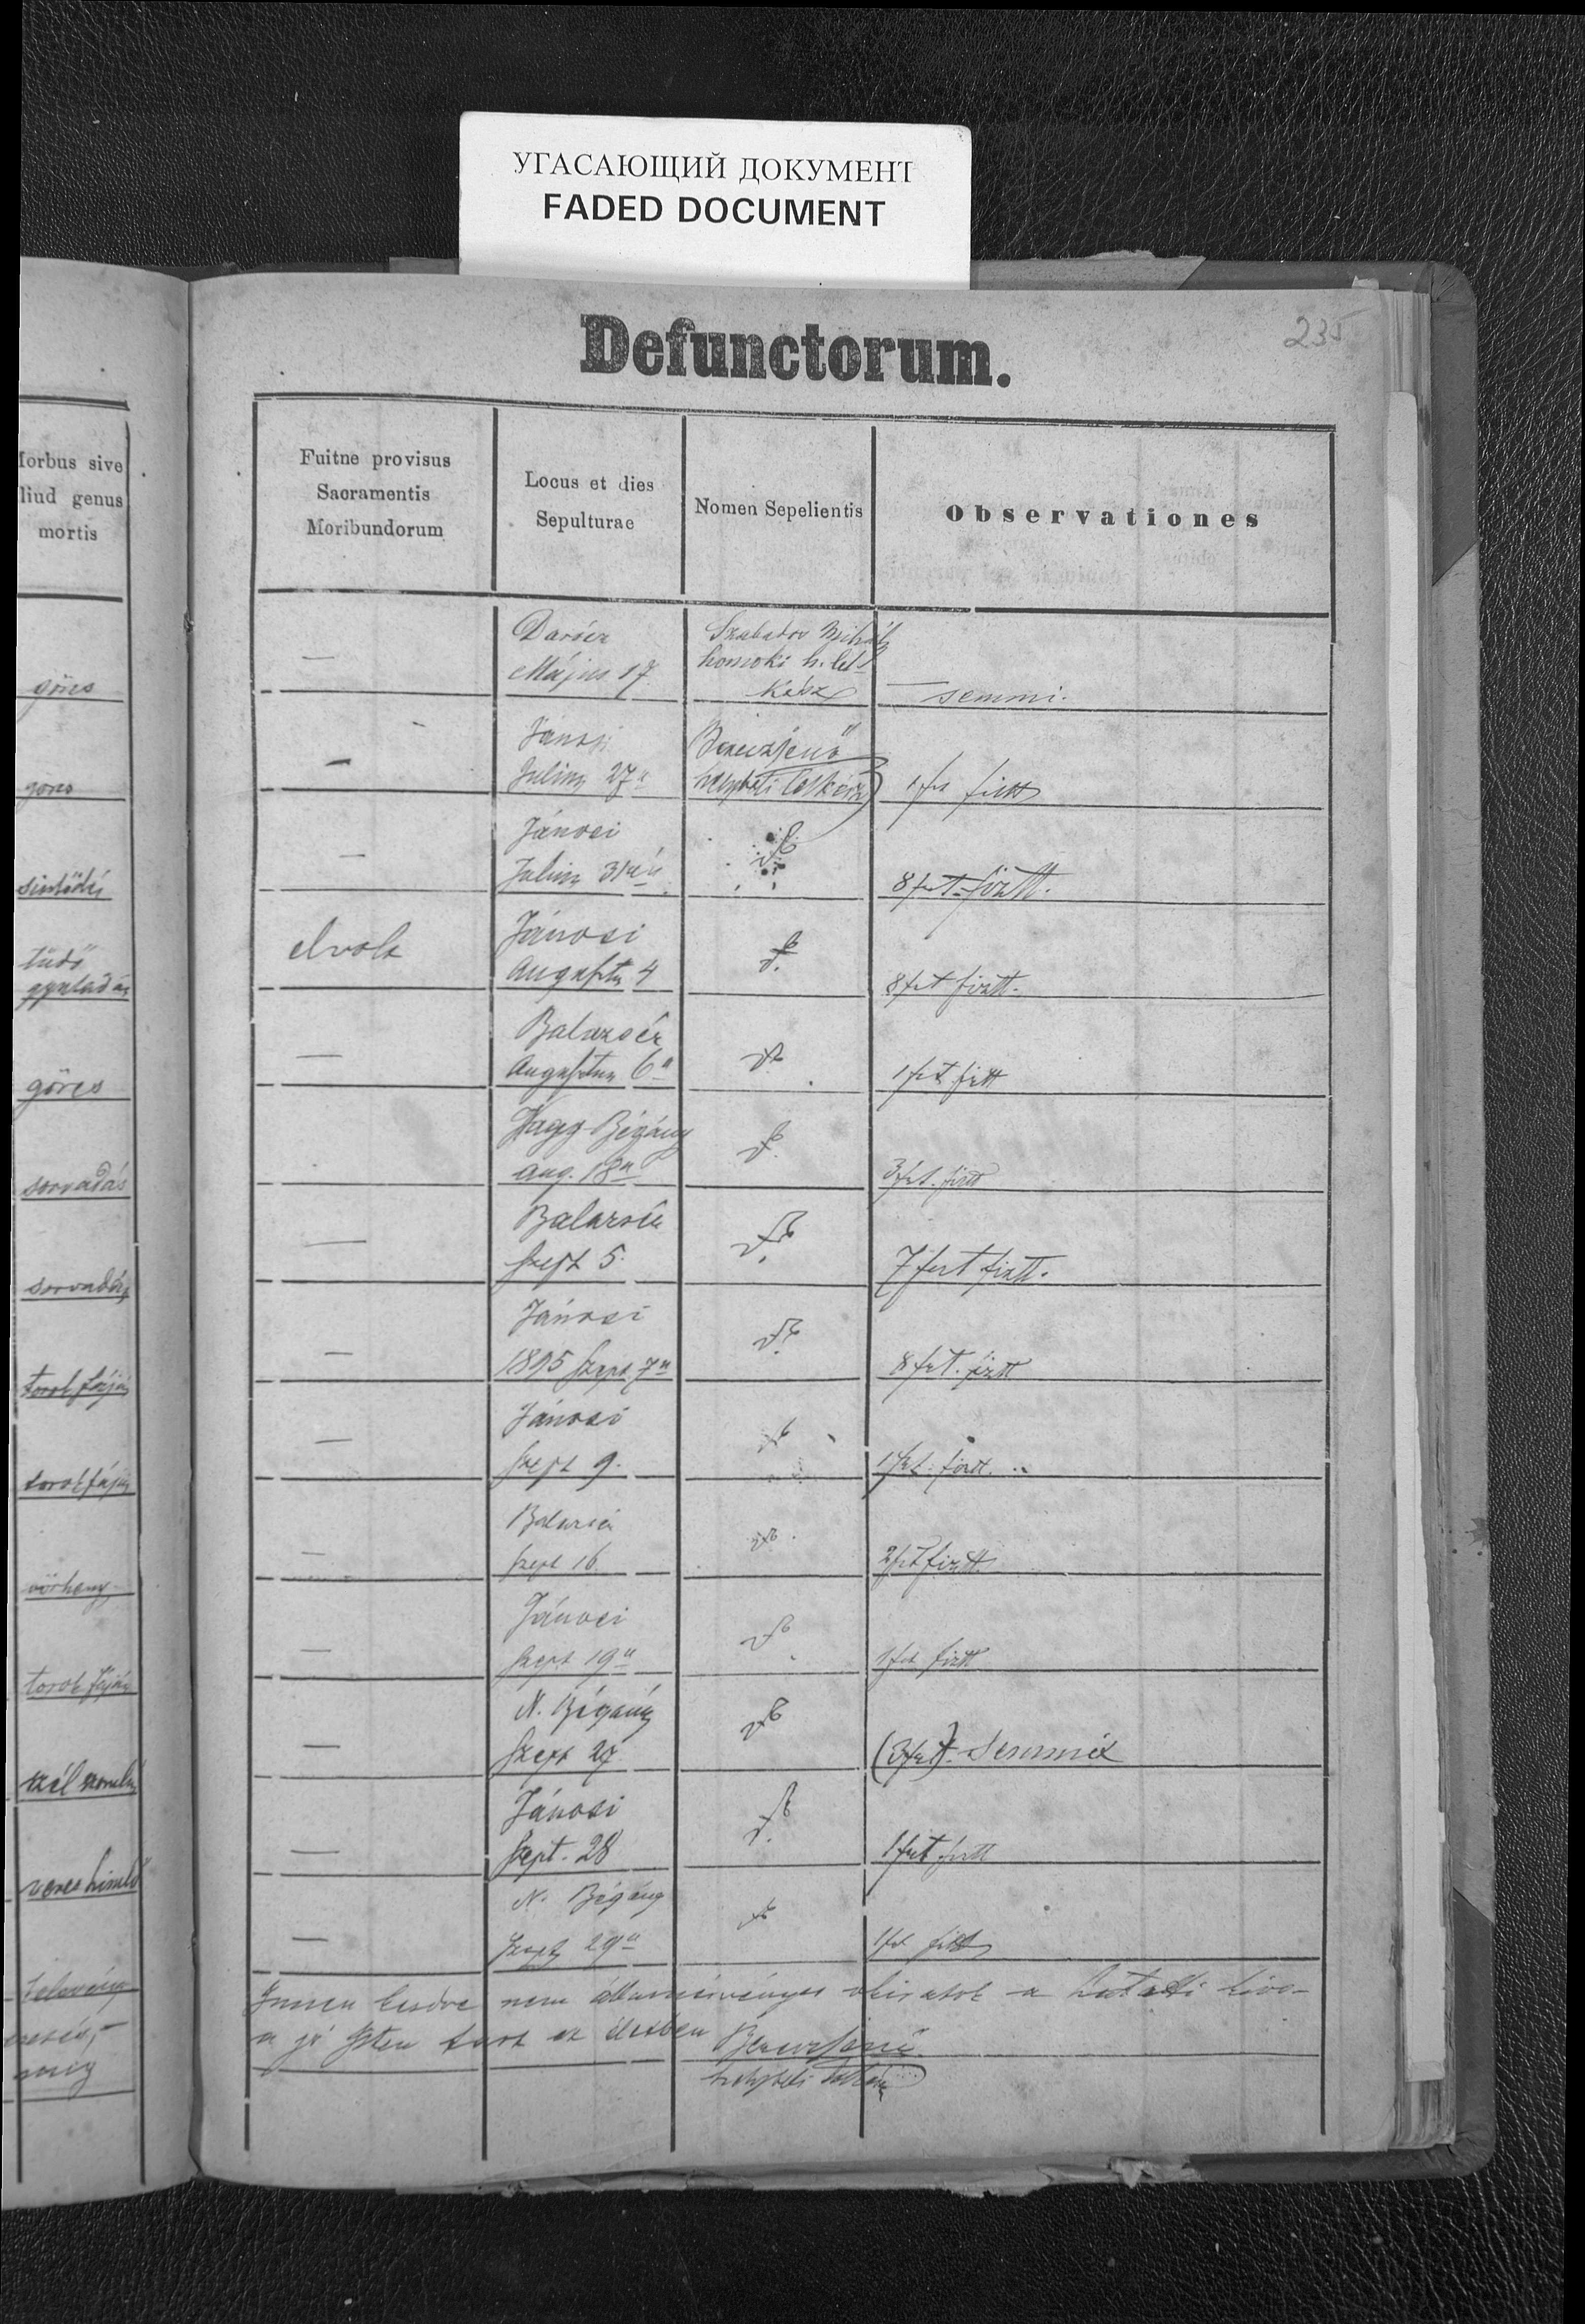 УГАСАЮЩИЙ ДОКУМЕНТ
FADED DOCUMENT
235
Defunctorum.
Morbus sive
liud genus
mortis
Fuitne provisus
Sacramentis
Moribundorum
Locus et dies
Sepulturae
Nomen Sepelientis
Observationes
görcs
—
Darócz
Május 17
Szabados Mihály
homoki h. lel
kész
semmi.
görcs
—
Jánosi
Julius 27n
Bereczjenő
helybeli lelkész
1 frt fiztt
—
Jánosi
Julius 31én
8 frt fiztt.
tüdő
gyuladás
elvolt
Jánosi
Augustus 4
8 frt fiztt.
görcs
—
Balazsér
Augustus 6n
1 frt fiztt
sorvadás
Nagy-Bégány
aug. 18n
3 frt. fiztt
sorvadás
—
Balazsér
Szept 5.
7 frt fiztt.
torok fájás
—
Jánosi
1895 Szept. 7n
8 frt. fiztt
torokfájás
—
Jánosi
Szept 9.
1 frt. fiztt.
vörheny
—
Balazsér
Szept 16
2 frt fiztt.
torok fájás
—
Jánosi
Szept 19n
1 frt fiztt
—
N. Bégány
Szept 27
(3 frt) semmit
veres himlő
—
Jánosi
Szept. 28
1 frt fiztt
—
N. Bégány
Szept 29n
1 frt fiztt
Innen kezdve nem államérvényes okiratok a
a jó Isten tart ez életben
Bereczjenő
helybeli lelkész